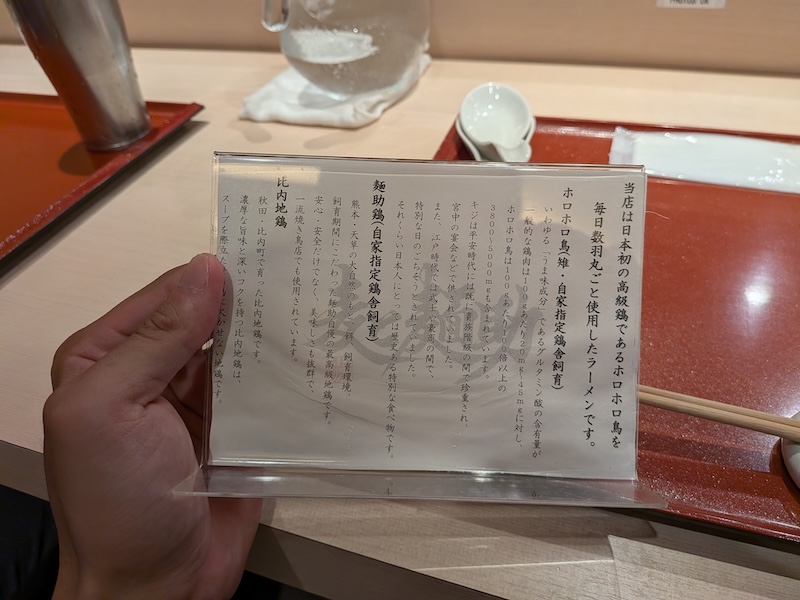 当店は日本初の高級鶏であるホロホロ鳥を
毎日数羽丸ごと使用したラーメンです。
ホロホロ鳥(雉・自家指定鶏舎飼育)
いわゆる「うま味成分」であるグルタミン酸の含有量が
一般的な鶏肉は100gあたり20mg~48mgに対し、
ホロホロ鳥は100gあたり 倍以上の
3800~5000mgも含まれています。
キジは平安時代には既に貴族階級の間で珍重され、
宮中の宴会などで供されました。
また、江戸時代では武士の最高の間で、
特別な日のごちそうとされていました。
それくらい日本人にとっては歴史ある特別な食べ物です。
麺助鶏(自家指定鶏舎飼育)
熊本・天草の大自然のもと、餌、飼育環境、
飼育期間にこだわった麺助自慢の最高級地鶏です。
安心・安全だけでなく、美味しさも抜群で、
一流焼き鳥店でも使用されています。
比内地鶏
秋田・比内町で育った比内地鶏です。
濃厚な旨味と深いコクを持つ比内地鶏は、
スープを際立た 欠かせない地鶏です。
麺助